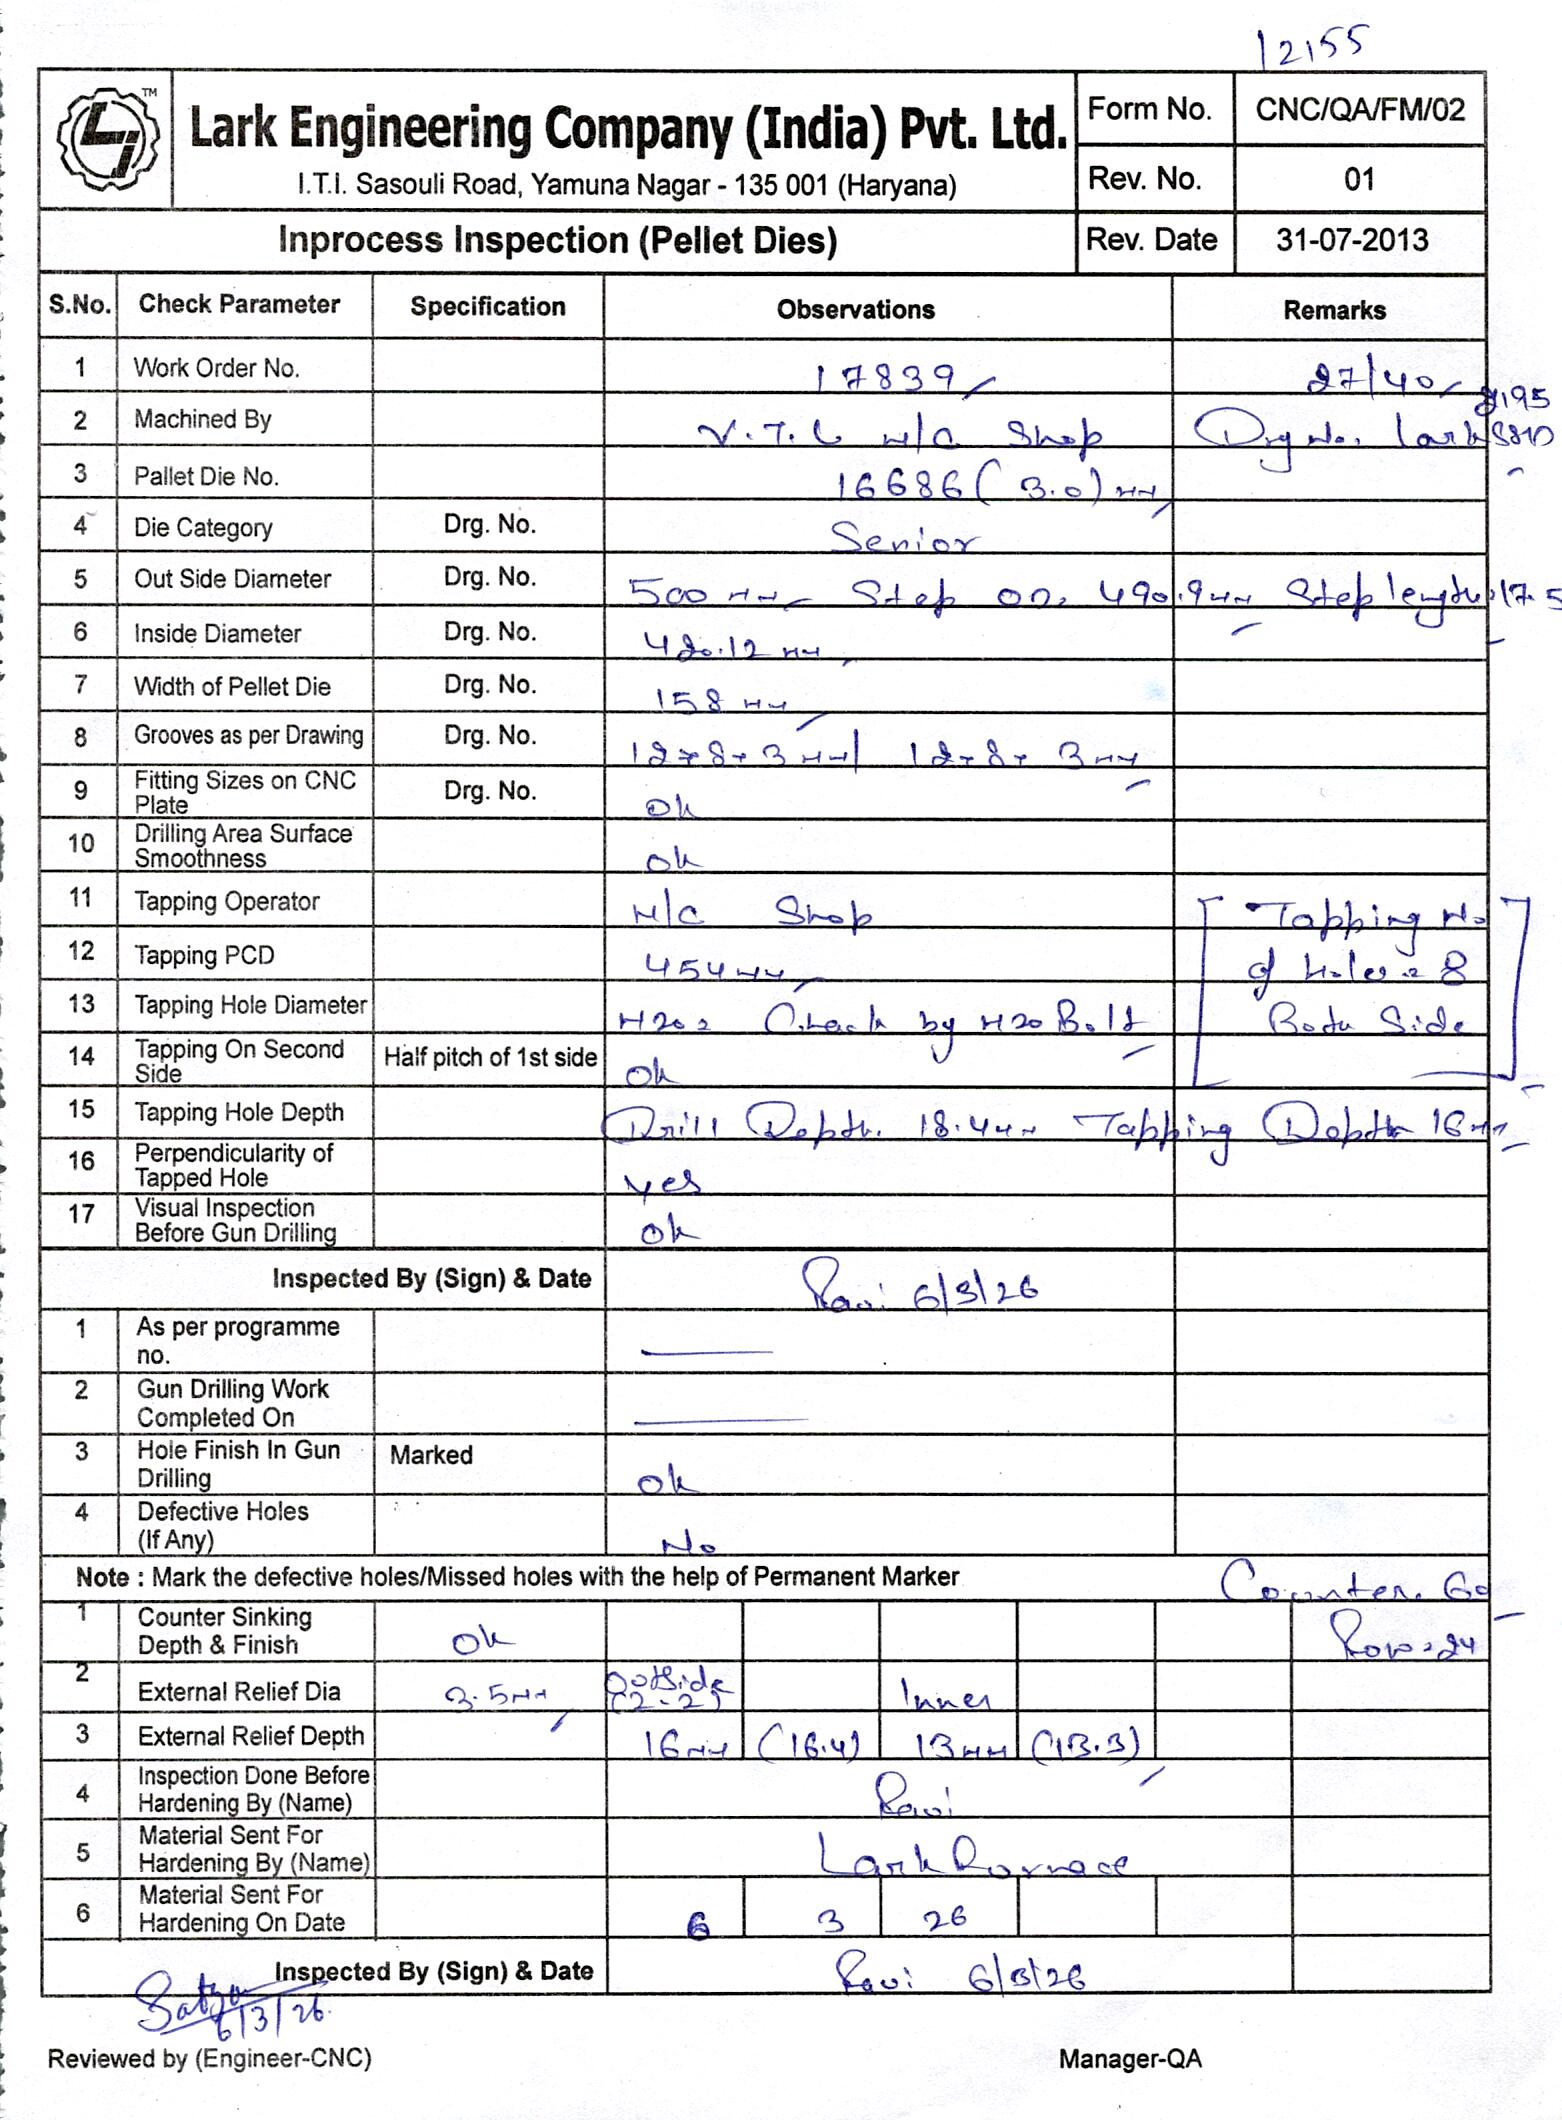 12155
TM
Lark Engineering Company (India) Pvt. Ltd.
I.T.I. Sasouli Road, Yamuna Nagar - 135 001 (Haryana)
Form No. CNC/QA/FM/02
Rev. No. 01
Inprocess Inspection (Pellet Dies) Rev. Date 31-07-2013
S.No. Check Parameter Specification Observations Remarks
1 Work Order No. 17839 27/40
2 Machined By V.T.L M/C Shop Drg No. Lark 5810
3 Pallet Die No. 16686 (3.0) MM
4 Die Category Drg. No. Senior
5 Out Side Diameter Drg. No. 500 MM Step OD. 490.9 MM Step length. 17.5
6 Inside Diameter Drg. No. 420.12 MM
7 Width of Pellet Die Drg. No. 158 MM
8 Grooves as per Drawing Drg. No. 12×8×3 MM/ 12×8×3 MM
9 Fitting Sizes on CNC Plate Drg. No. Ok
10 Drilling Area Surface Smoothness Ok
11 Tapping Operator M/C Shop Tapping No
12 Tapping PCD 454 MM of Holes = 8
13 Tapping Hole Diameter M20 = Check by M20 Bolt Both Side
14 Tapping On Second Side Half pitch of 1st side Ok
15 Tapping Hole Depth Drill Depth. 18.4 MM Tapping Depth 16 MM
16 Perpendicularity of Tapped Hole Yes
17 Visual Inspection Before Gun Drilling Ok
Inspected By (Sign) & Date Ravi 6/3/26
1 As per programme no.
2 Gun Drilling Work Completed On
3 Hole Finish In Gun Drilling Marked Ok
4 Defective Holes (If Any) No
Note : Mark the defective holes/Missed holes with the help of Permanent Marker Counter. 60
1 Counter Sinking Depth & Finish Ok Row = 24
2 External Relief Dia 3.5 MM Outside (2-2) Inner
3 External Relief Depth 16 MM (16.4) 13 MM (13.3)
4 Inspection Done Before Hardening By (Name) Ravi
5 Material Sent For Hardening By (Name) Lark Furnace
6 Material Sent For Hardening On Date 6 3 26
Inspected By (Sign) & Date Ravi 6/3/26
Satya
6/3/26
Reviewed by (Engineer-CNC) Manager-QA